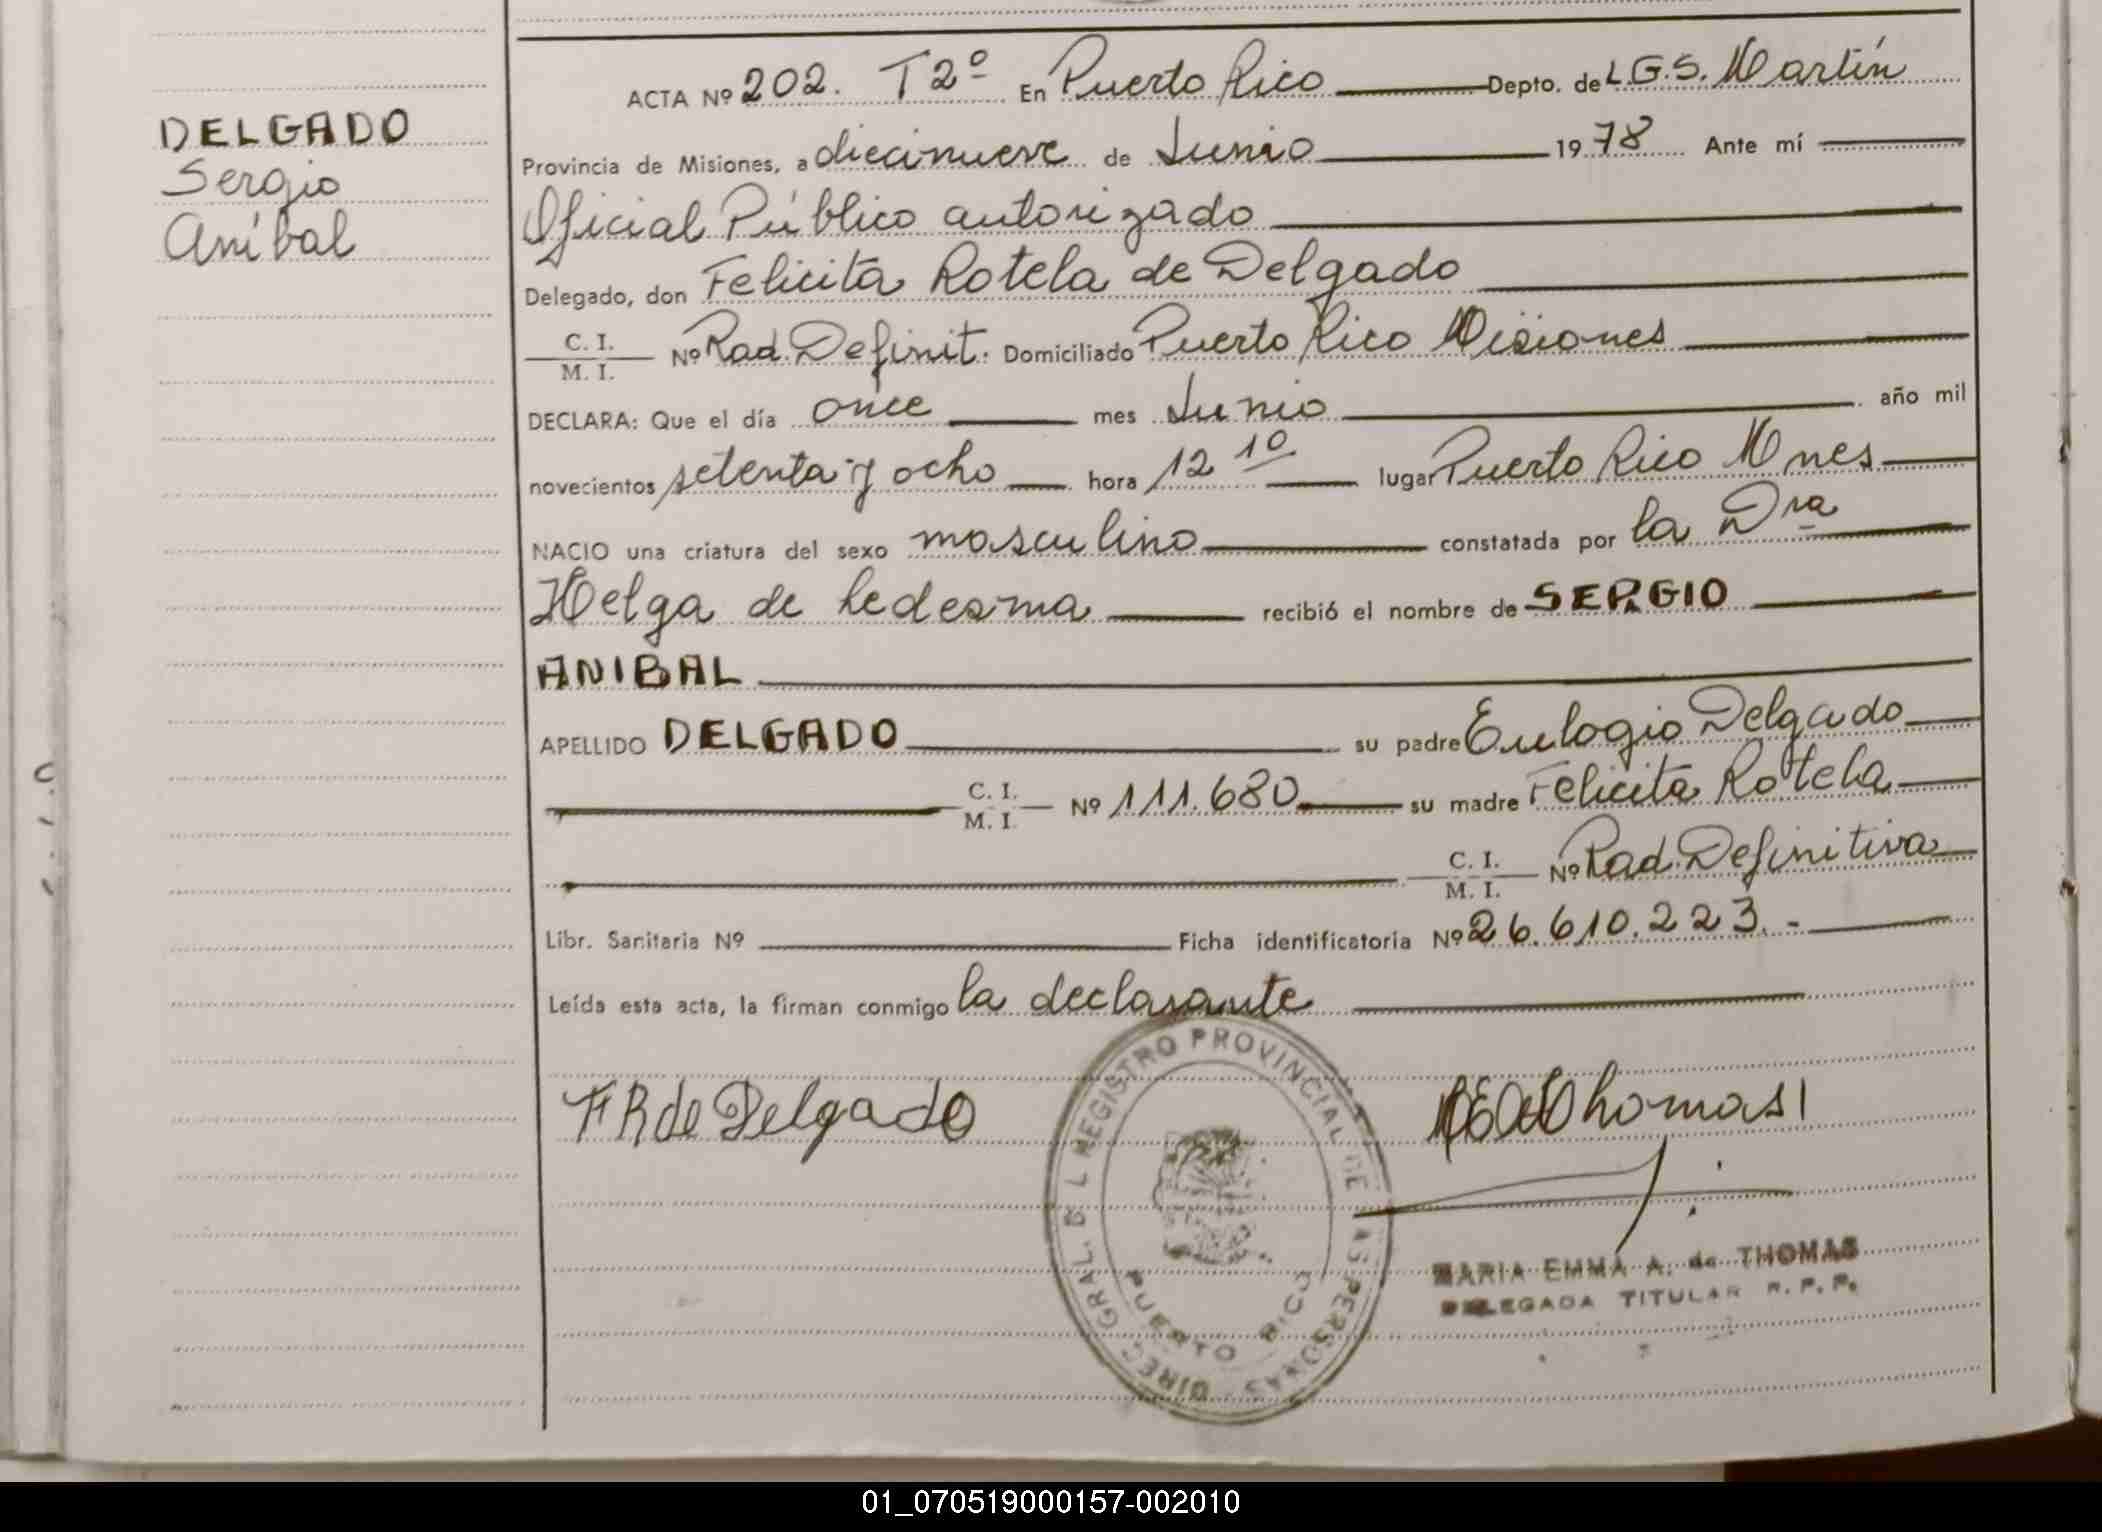 DELGADO
Sergio
Aníbal
ACTA Nº 202. T 2º En Puerto Rico Depto. de L.G.S. Martín
Provincia de Misiones, a diecinueve de Junio 1978 Ante mí
Oficial Público autorizado
Delegado, don Felicita Rotela de Delgado
C. I.
M. I. Nº Rad. Definit. Domiciliado Puerto Rico Misiones
DECLARA: Que el día once mes Junio año mil
novecientos setenta y ocho hora 12 10 lugar Puerto Rico Mnes
NACIO una criatura del sexo masculino constatada por la Dra
Helga de Ledesma recibió el nombre de SERGIO
ANIBAL
APELLIDO DELGADO su padre Eulogio Delgado
C. I.
M. I. Nº 111.680 su madre Felicita Rotela
C. I.
M. I. Nº Rad. Definitiva
Libr. Sanitaria Nº Ficha identificatoria Nº 26.610.223.-
Leída esta acta, la firman conmigo la declarante
F R de Delgado
Thomas
DIREC. GRAL. DEL REGISTRO PROVINCIAL DE LAS PERSONAS
PUERTO RICO
MARIA EMMA A. de THOMAS
DELEGADA TITULAR R. P. P.
01_070519000157-002010